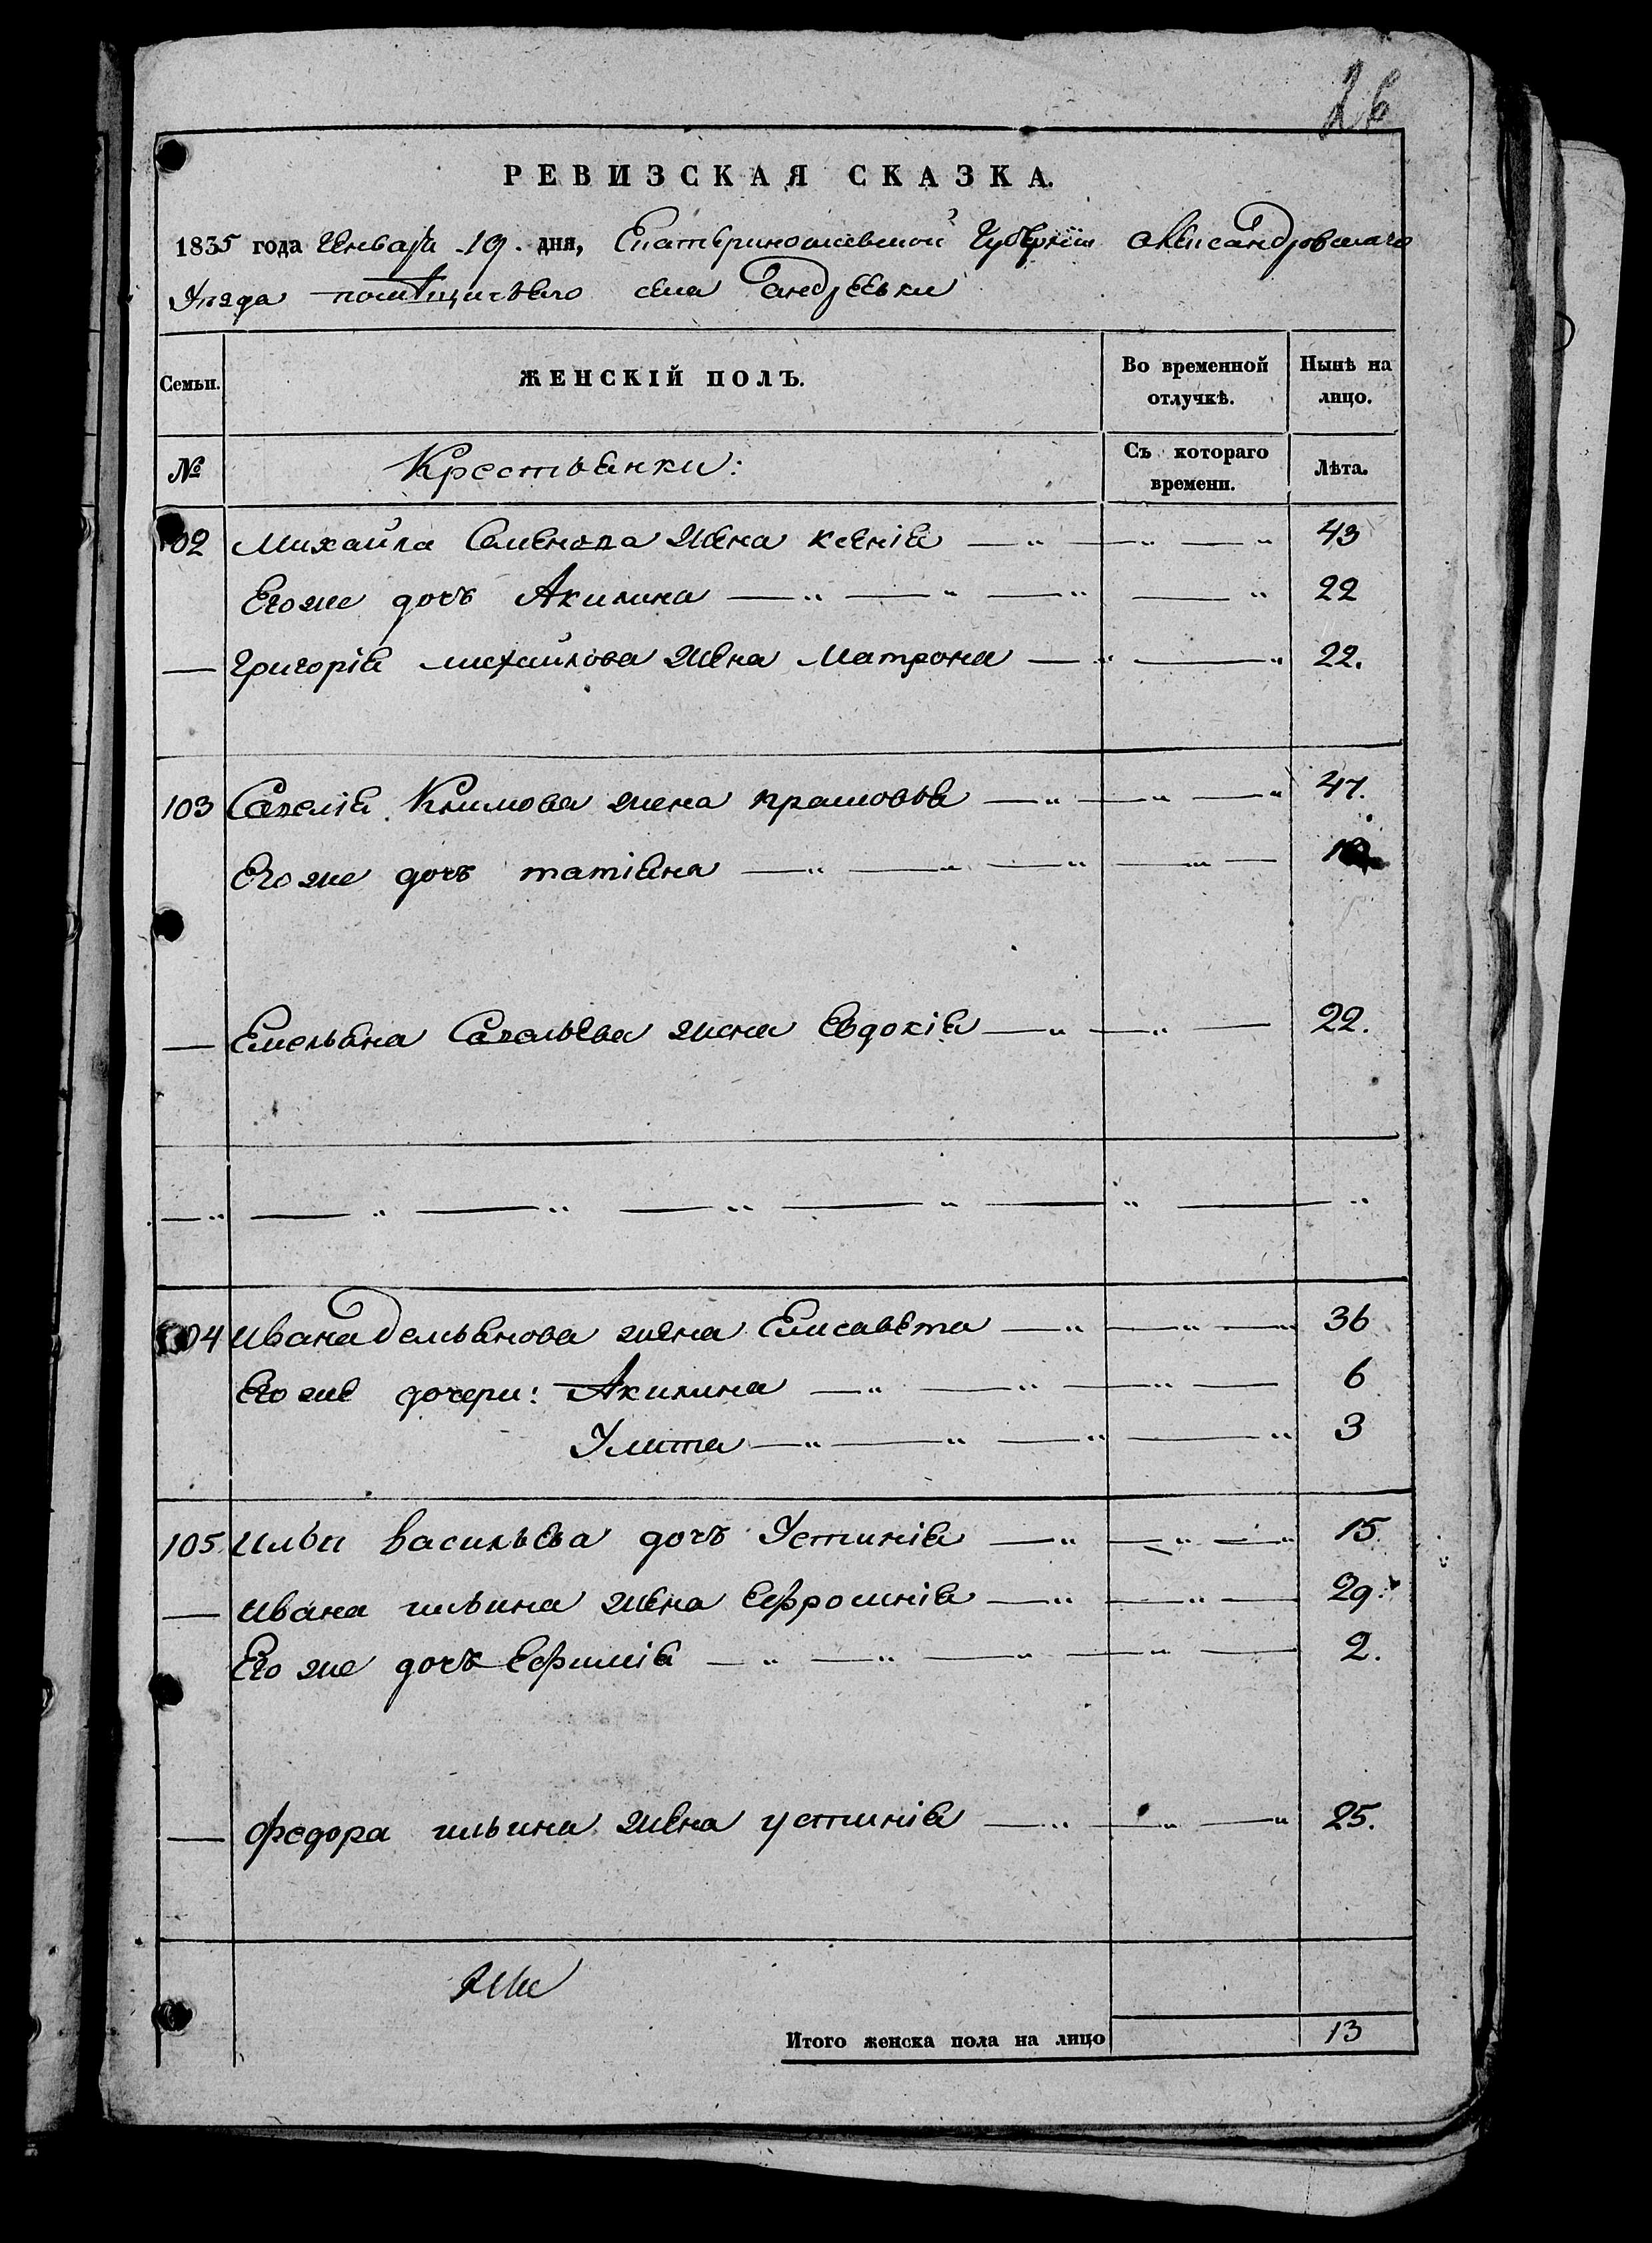 26
РЕВИЗСКАЯ СКАЗКА.
1835 года Января 19. дня, Екатеринославской Губерніи Александровскаго
Уѣзда помѣщичьяго села Андреевки
Семьи. ЖЕНСКІЙ ПОЛЪ. Во временной отлучкѣ. Нынѣ на лицо.
№ Крестьянки: Съ котораго времени. Лѣта.
102 Михайла Семенова жена Ксенія — " — " — " 43
Его же дочь Акилина — " — " — " — " 22
— Григорія михайлова жена Матрона — " — " 22.
103 Савелія Климова жена прасковья — " — " — " 47.
Его же дочь татіяна — " — " — " — " —
— Емельяна Савельева жена Евдокія — " — " — 22.
— " — " — " — " — " — " — "
104 Ивана демьянова жена Елисавета — " — " — " 36
Его же дочери: Акилина — " — " — " — 6
Улита — " — " — " — " 3
105 Ильи васильева дочь Устинія — " — " — " 15.
— Ивана ильина жена Ефросинія — " — " — 29.
Его же дочь Ефимія — " — " — " — " — 2.
— федора ильина жена устинія — " — " — " 25.
Итого женска пола на лицо 13